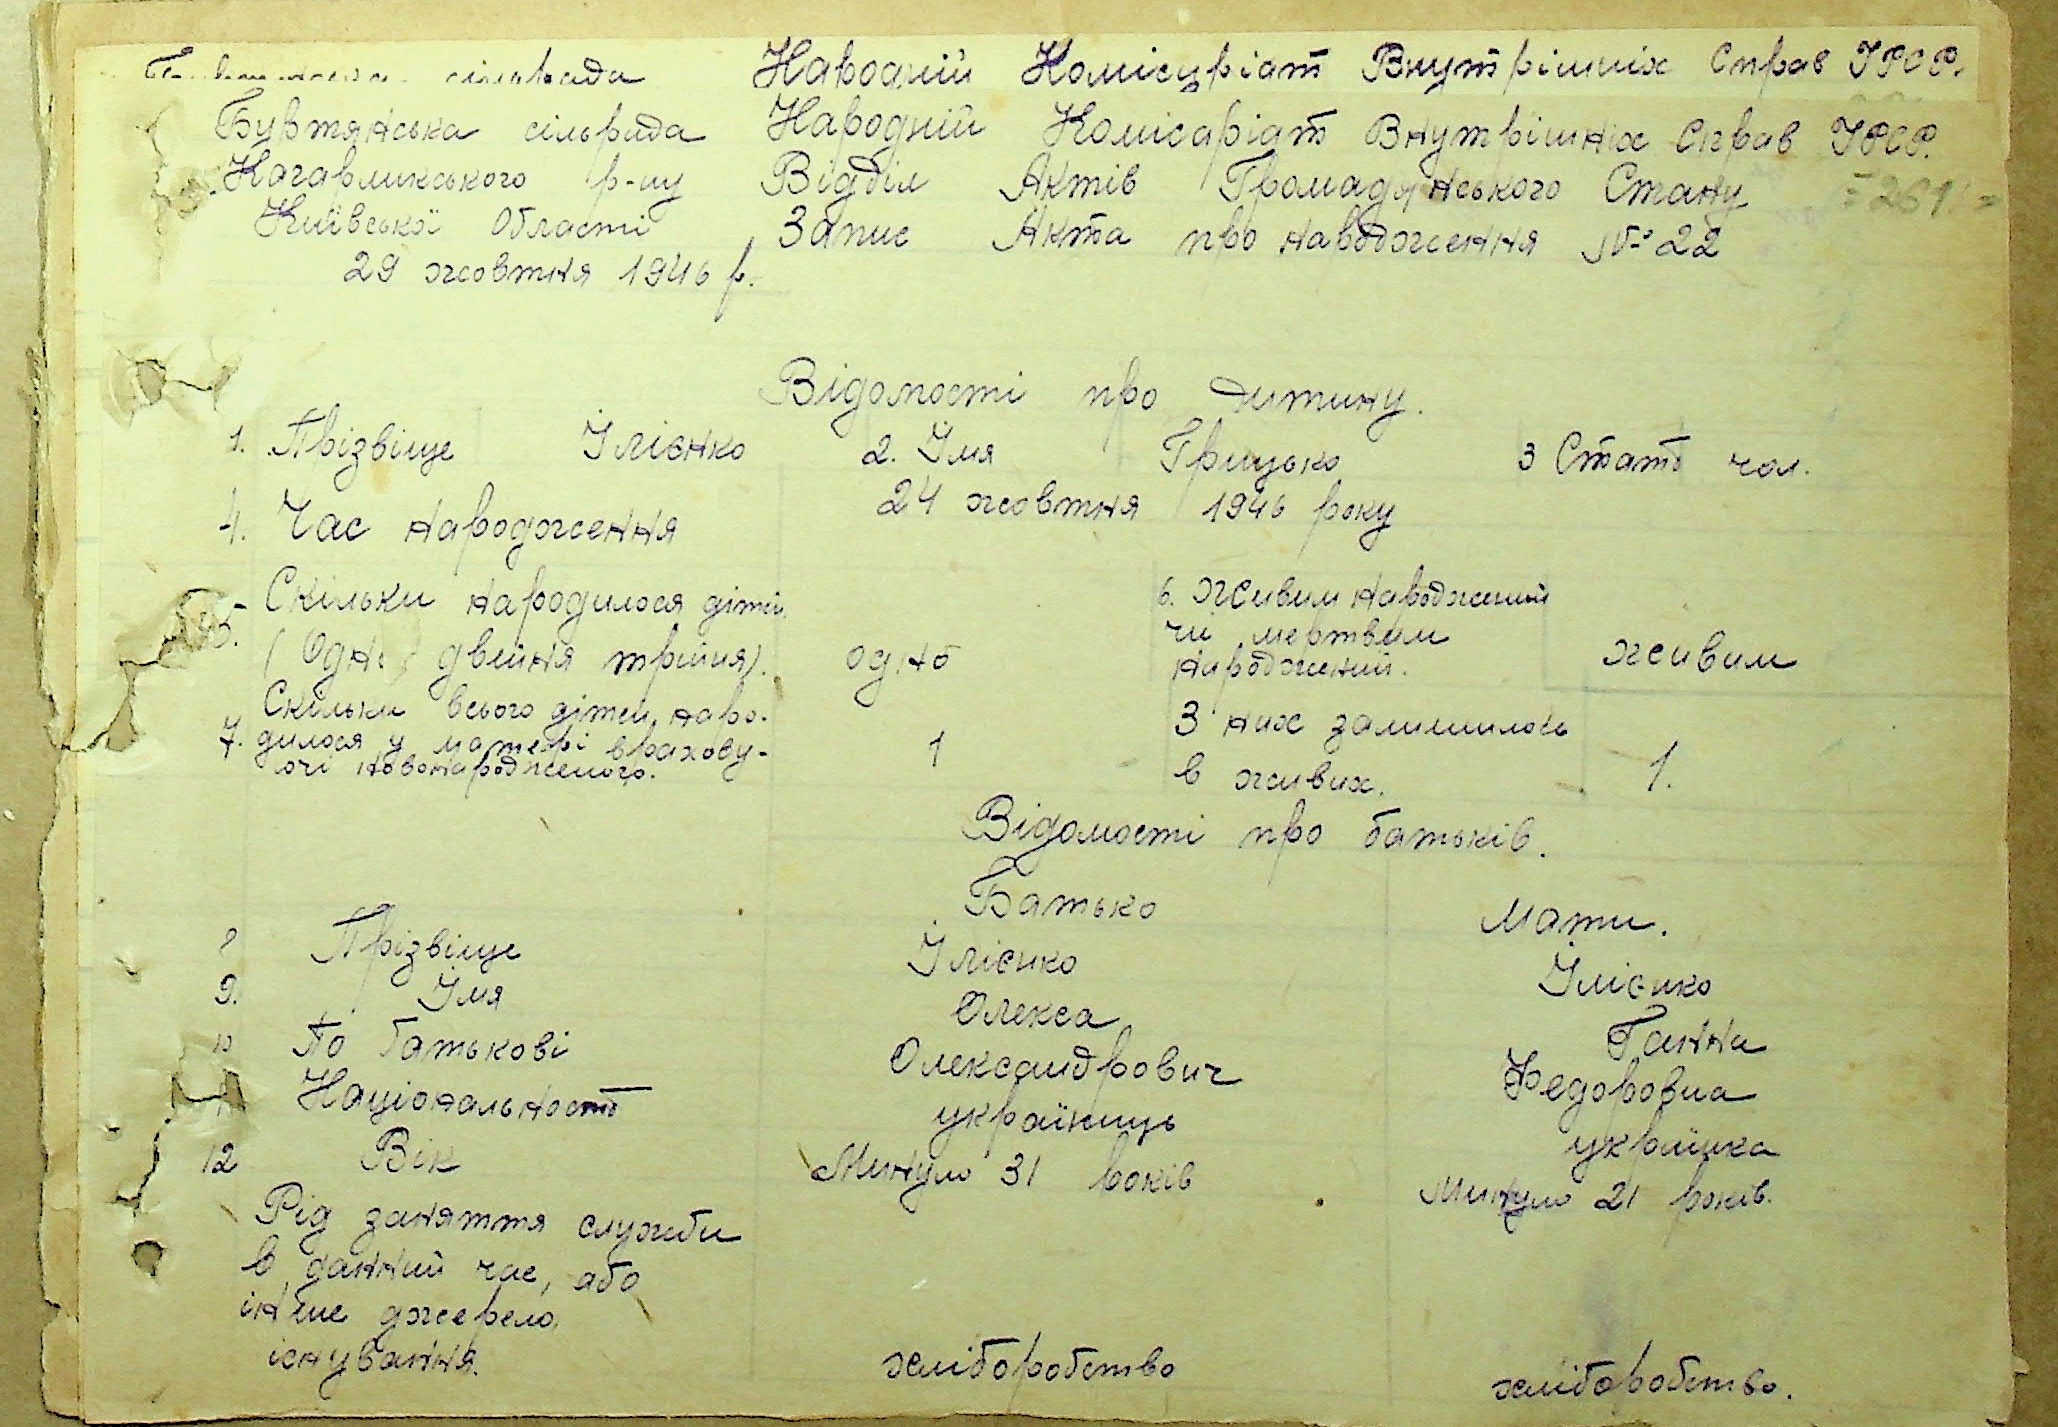 сільрада Народній Комісаріат Внутрішніх Справ УРСР.
Бувтянська сільрада Народній Комісаріат Внутрішніх Справ УРСР.
Кагарликського р-ну Відділ Актів Громадянського Стану
Київської Області Запис Акта про народження № 22
29 жовтня 1946 р.
Відомості про дитину.
1. Прізвіще Ілієнко 2. Імя Грицько 3 Стать чол.
4. Час народження 24 жовтня 1946 року
5. Скільки народилося дітей
(Одно, двійня трійня). одно
6. Живим народжений
чи мертвим
народжений. живим
7. Скільки всього дітей наро-
дилося у матері врахову-
ючі новонародженого. 1
З них залишилось
в живих. 1.
Відомості про батьків.
Батько Мати.
8 Прізвіще Ілієнко Ілієнко
9. Імя Олекса Ганна
10 По батькові Олександрович Федоровна
11 Національность українць українка
12 Вік Минуло 31 років Минуло 21 років.
Рід заняття служби
в данний час, або
інше джерело
існування. хліборобство хліборобство.